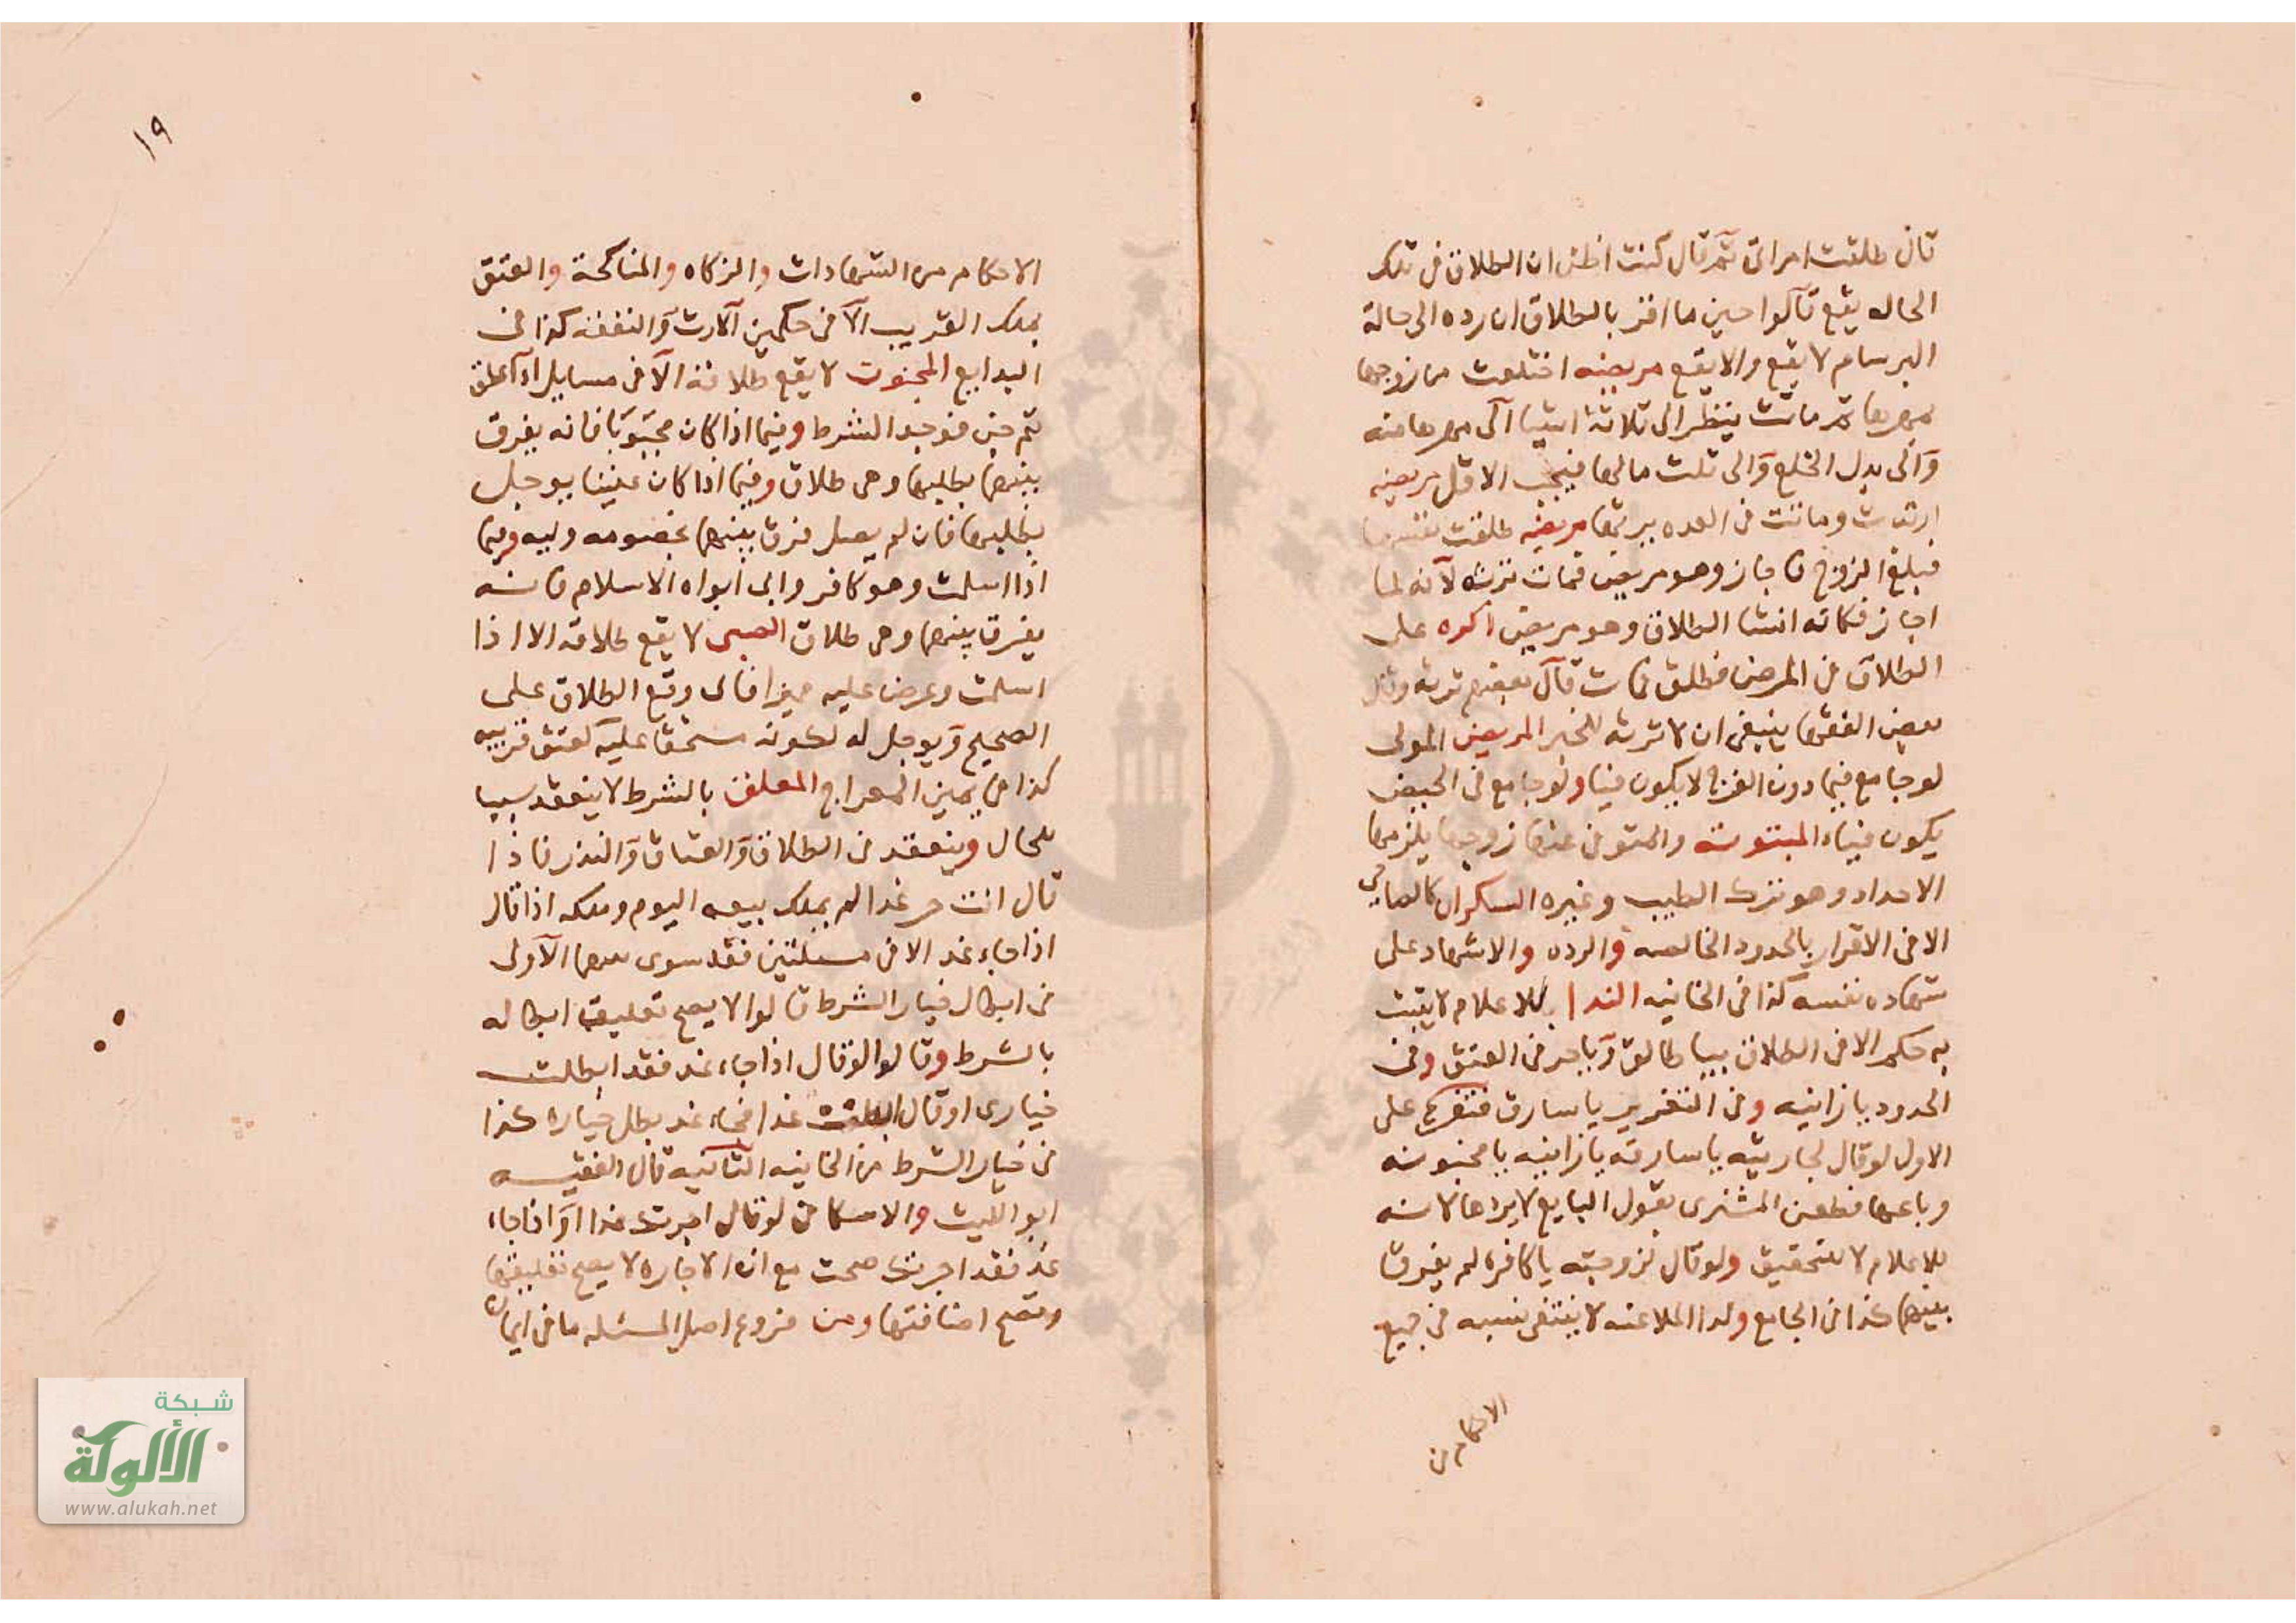 قال طلقت امراتى ثم قال كنت اظن ان الطلاق فى تلك
الحاله يقع قالوا حين ما اقر بالطلاق ان رده الى حالة
البرسام لا يقع والا يقع مريضه اختلعت من زوجها
بمهرها ثم ماتت ينظر الى ثلاثة اشيا الى مهرها منه
والى بدل الخلع والى ثلث مالها فيجب الاقل مريضه
ارتدت وماتت فى العده يرثها مريضه طلقت نفسها
فبلغ الزوج فاجاز وهو مريض فمات ترثه لانه لما
اجاز فكانه انشا الطلاق وهو مريض اكره على
الطلاق فى المرض فطلق فمات قال بعضهم ترثه وقال
بعض الفقها ينبغى ان لا ترثه للخبر المريض المولى
لو جامع فيما دون الفرج لا يكون فيئا ولو جامع فى الحيض
يكون فيئاء المبتوته والمتوفى عنها زوجها يلزمها
الاحداد وهو ترك الطيب وغيره السكران كالصاحى
الا فى الاقرار بالحدود الخالصه والرده والاشهاد على
شهاده نفسه كذا فى الخانيه الندا للاعلام لا يثبت
به حكم الا فى الطلاق بيا طالق وبيا حر فى العتق وفى
الحدود يا زانيه وفى التعزير يا سارق فتفرع على
الاول لو قال لجاريته يا سارقه يا زانيه يا مجنونه
وباعها فطعن المشترى بقول البايع لا يردها لانه
للاعلام لا للتحقيق ولو قال لزوجته يا كافره لم يفرق
بينهما كذا فى الجامع ولد الملاعنه لا ينتفى نسبه فى جميع
الاحكام من
١٩
الاحكام من الشهادات والزكاه والمناكحة والعتق
بملك القريب الا فى حكمين الارث والنفقه كذا فى
البدايع المجنون لا يقع طلاقه الا فى مسايل اذا علق
ثم جن فوجد الشرط وفيما اذا كان مجبوبا فانه يفرق
بينهما بطلبها وهى طلاق وفيما اذا كان عنينا يوجل
بطلبها فان لم يصل فرق بينهما بخصومه وليه وفيما
اذا اسلمت وهو كافر وابى ابواه الاسلام فانه
يفرق بينهما وهى طلاق الصبى لا يقع طلاقه الا اذا
اسلمت وعرض عليه مميزا فابى وقع الطلاق على
الصحيح ويوجل له لكونه مستحقا عليه كعتق قريبه
كذا فى يمين المعراج المعلق بالشرط لا ينعقد سببا
للحال وينعقد فى الطلاق والعتاق والنذر فاذا
قال انت حر غدا لم يملك بيعه اليوم وملكه اذا قال
اذا جاء غد الا فى مسئلتين فقد سوى بينهما الاولى
فى ابطال خيار الشرط قالوا لا يصح تعليق ابطاله
بالشرط وقالوا لو قال اذا جاء غد فقد ابطلت
خيارى او قال ابطلت غدا فجاء غد بطل خياره كذا
فى خيار الشرط من الخانيه الثانيه قال الفقيه
ابو الليث والاسكاف لو قال اجرتك غدا او اذا جاء
غد فقد اجرتك صحت مع ان الاجاره لا يصح تعليقها
وتصح اضافتها ومن فروع اصل المسئله ما فى ايمان
شبكة
الألوكة
www.alukah.net